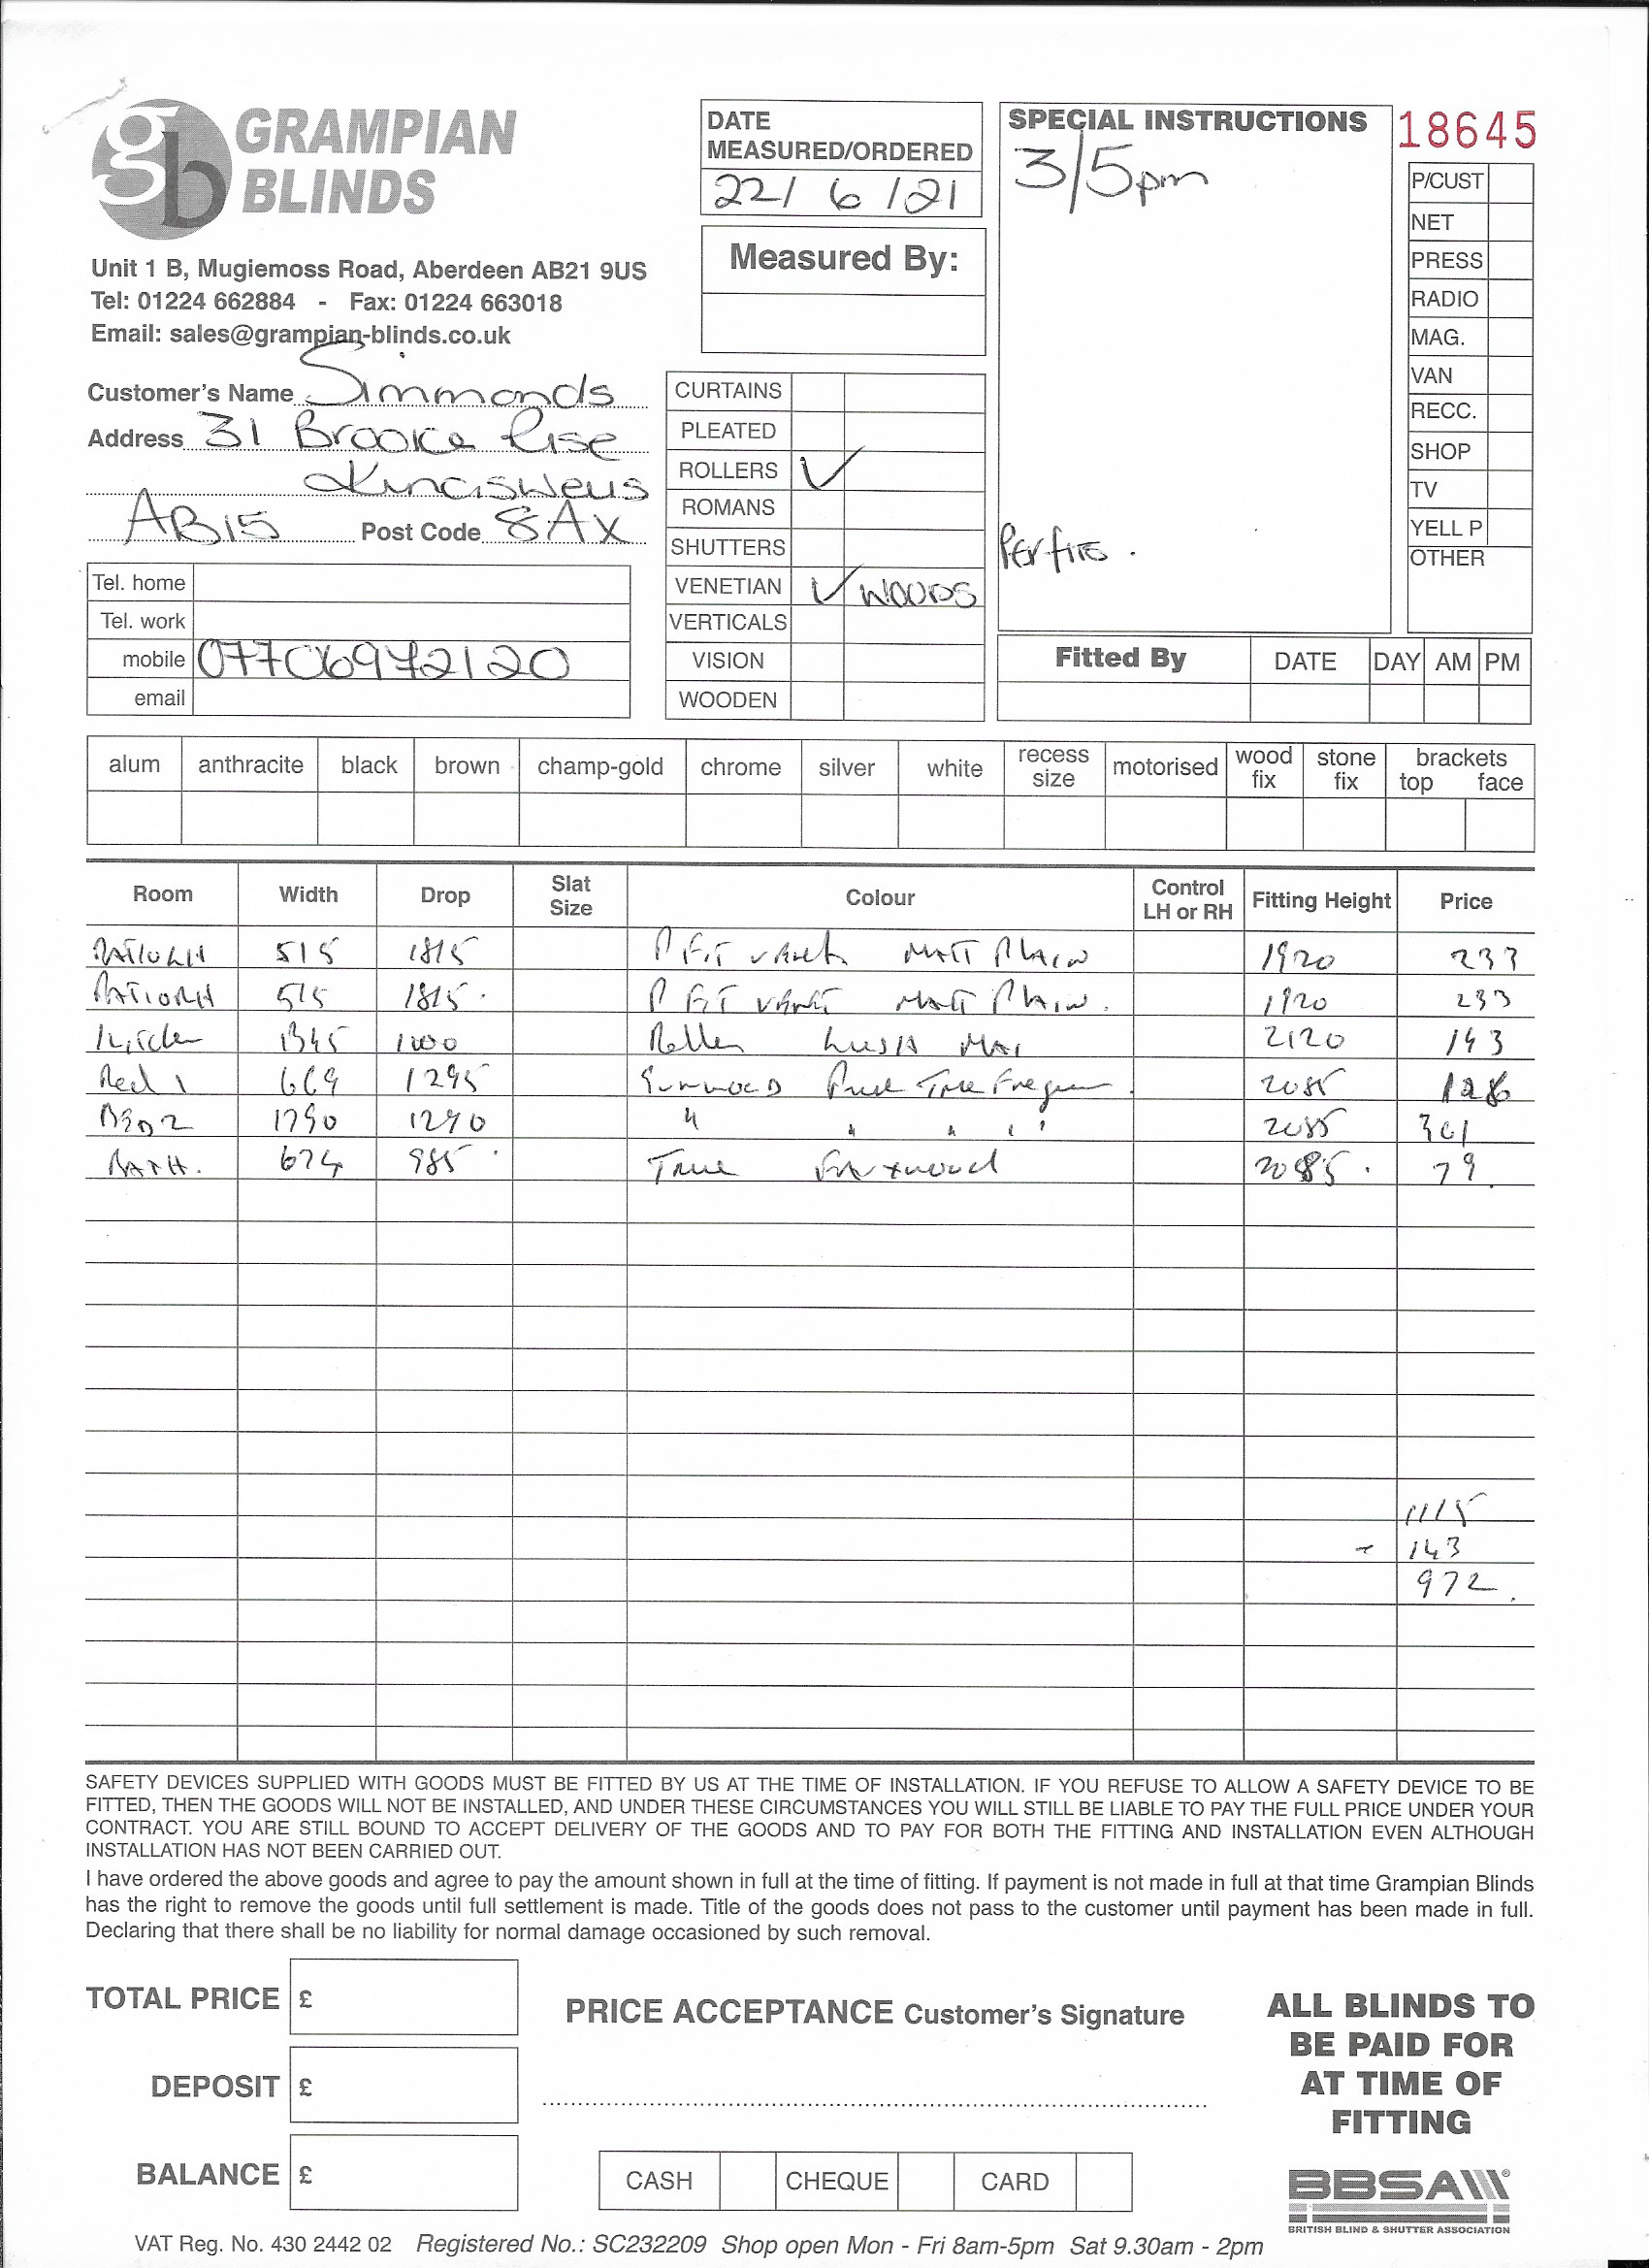 gb GRAMPIAN BLINDS
Unit 1 B, Mugiemoss Road, Aberdeen AB21 9US
Tel: 01224 662884 - Fax: 01224 663018
Email: sales@grampian-blinds.co.uk
Customer's Name Simmonds
Address 31 Brooke Rise
Kingswells
AB15 Post Code 8AX
Tel. home
Tel. work
mobile 07706972120
email
DATE
MEASURED/ORDERED
22/ 6 /21
Measured By:
CURTAINS
PLEATED
ROLLERS ✓
ROMANS
SHUTTERS
VENETIAN ✓ WOODS
VERTICALS
VISION
WOODEN
SPECIAL INSTRUCTIONS
3/5pm
Perfits.
18645
P/CUST
NET
PRESS
RADIO
MAG.
VAN
RECC.
SHOP
TV
YELL P
OTHER
Fitted By DATE DAY AM PM
alum anthracite black brown champ-gold chrome silver white recess size motorised wood fix stone fix brackets top face
Room Width Drop Slat Size Colour Control LH or RH Fitting Height Price
PATIO LH 515 1815 P FIT MATT PLAIN 1920 233
PATIO RH 515 1815 P FIT MATT PLAIN. 1920 233
Kitchen 1345 1000 Roller 2120 143
Bed 1 669 1295 Sunwood True Fine grain 2085 126
BED 2 1790 1290 " " " " " 2085 301
BATH. 674 985 True Fauxwood 2085. 79
1115
- 143
972.
SAFETY DEVICES SUPPLIED WITH GOODS MUST BE FITTED BY US AT THE TIME OF INSTALLATION. IF YOU REFUSE TO ALLOW A SAFETY DEVICE TO BE
FITTED, THEN THE GOODS WILL NOT BE INSTALLED, AND UNDER THESE CIRCUMSTANCES YOU WILL STILL BE LIABLE TO PAY THE FULL PRICE UNDER YOUR
CONTRACT. YOU ARE STILL BOUND TO ACCEPT DELIVERY OF THE GOODS AND TO PAY FOR BOTH THE FITTING AND INSTALLATION EVEN ALTHOUGH
INSTALLATION HAS NOT BEEN CARRIED OUT.
I have ordered the above goods and agree to pay the amount shown in full at the time of fitting. If payment is not made in full at that time Grampian Blinds
has the right to remove the goods until full settlement is made. Title of the goods does not pass to the customer until payment has been made in full.
Declaring that there shall be no liability for normal damage occasioned by such removal.
TOTAL PRICE £
DEPOSIT £
BALANCE £
PRICE ACCEPTANCE Customer's Signature
CASH CHEQUE CARD
ALL BLINDS TO
BE PAID FOR
AT TIME OF
FITTING
BBSA
BRITISH BLIND & SHUTTER ASSOCIATION
VAT Reg. No. 430 2442 02 Registered No.: SC232209 Shop open Mon - Fri 8am-5pm Sat 9.30am - 2pm